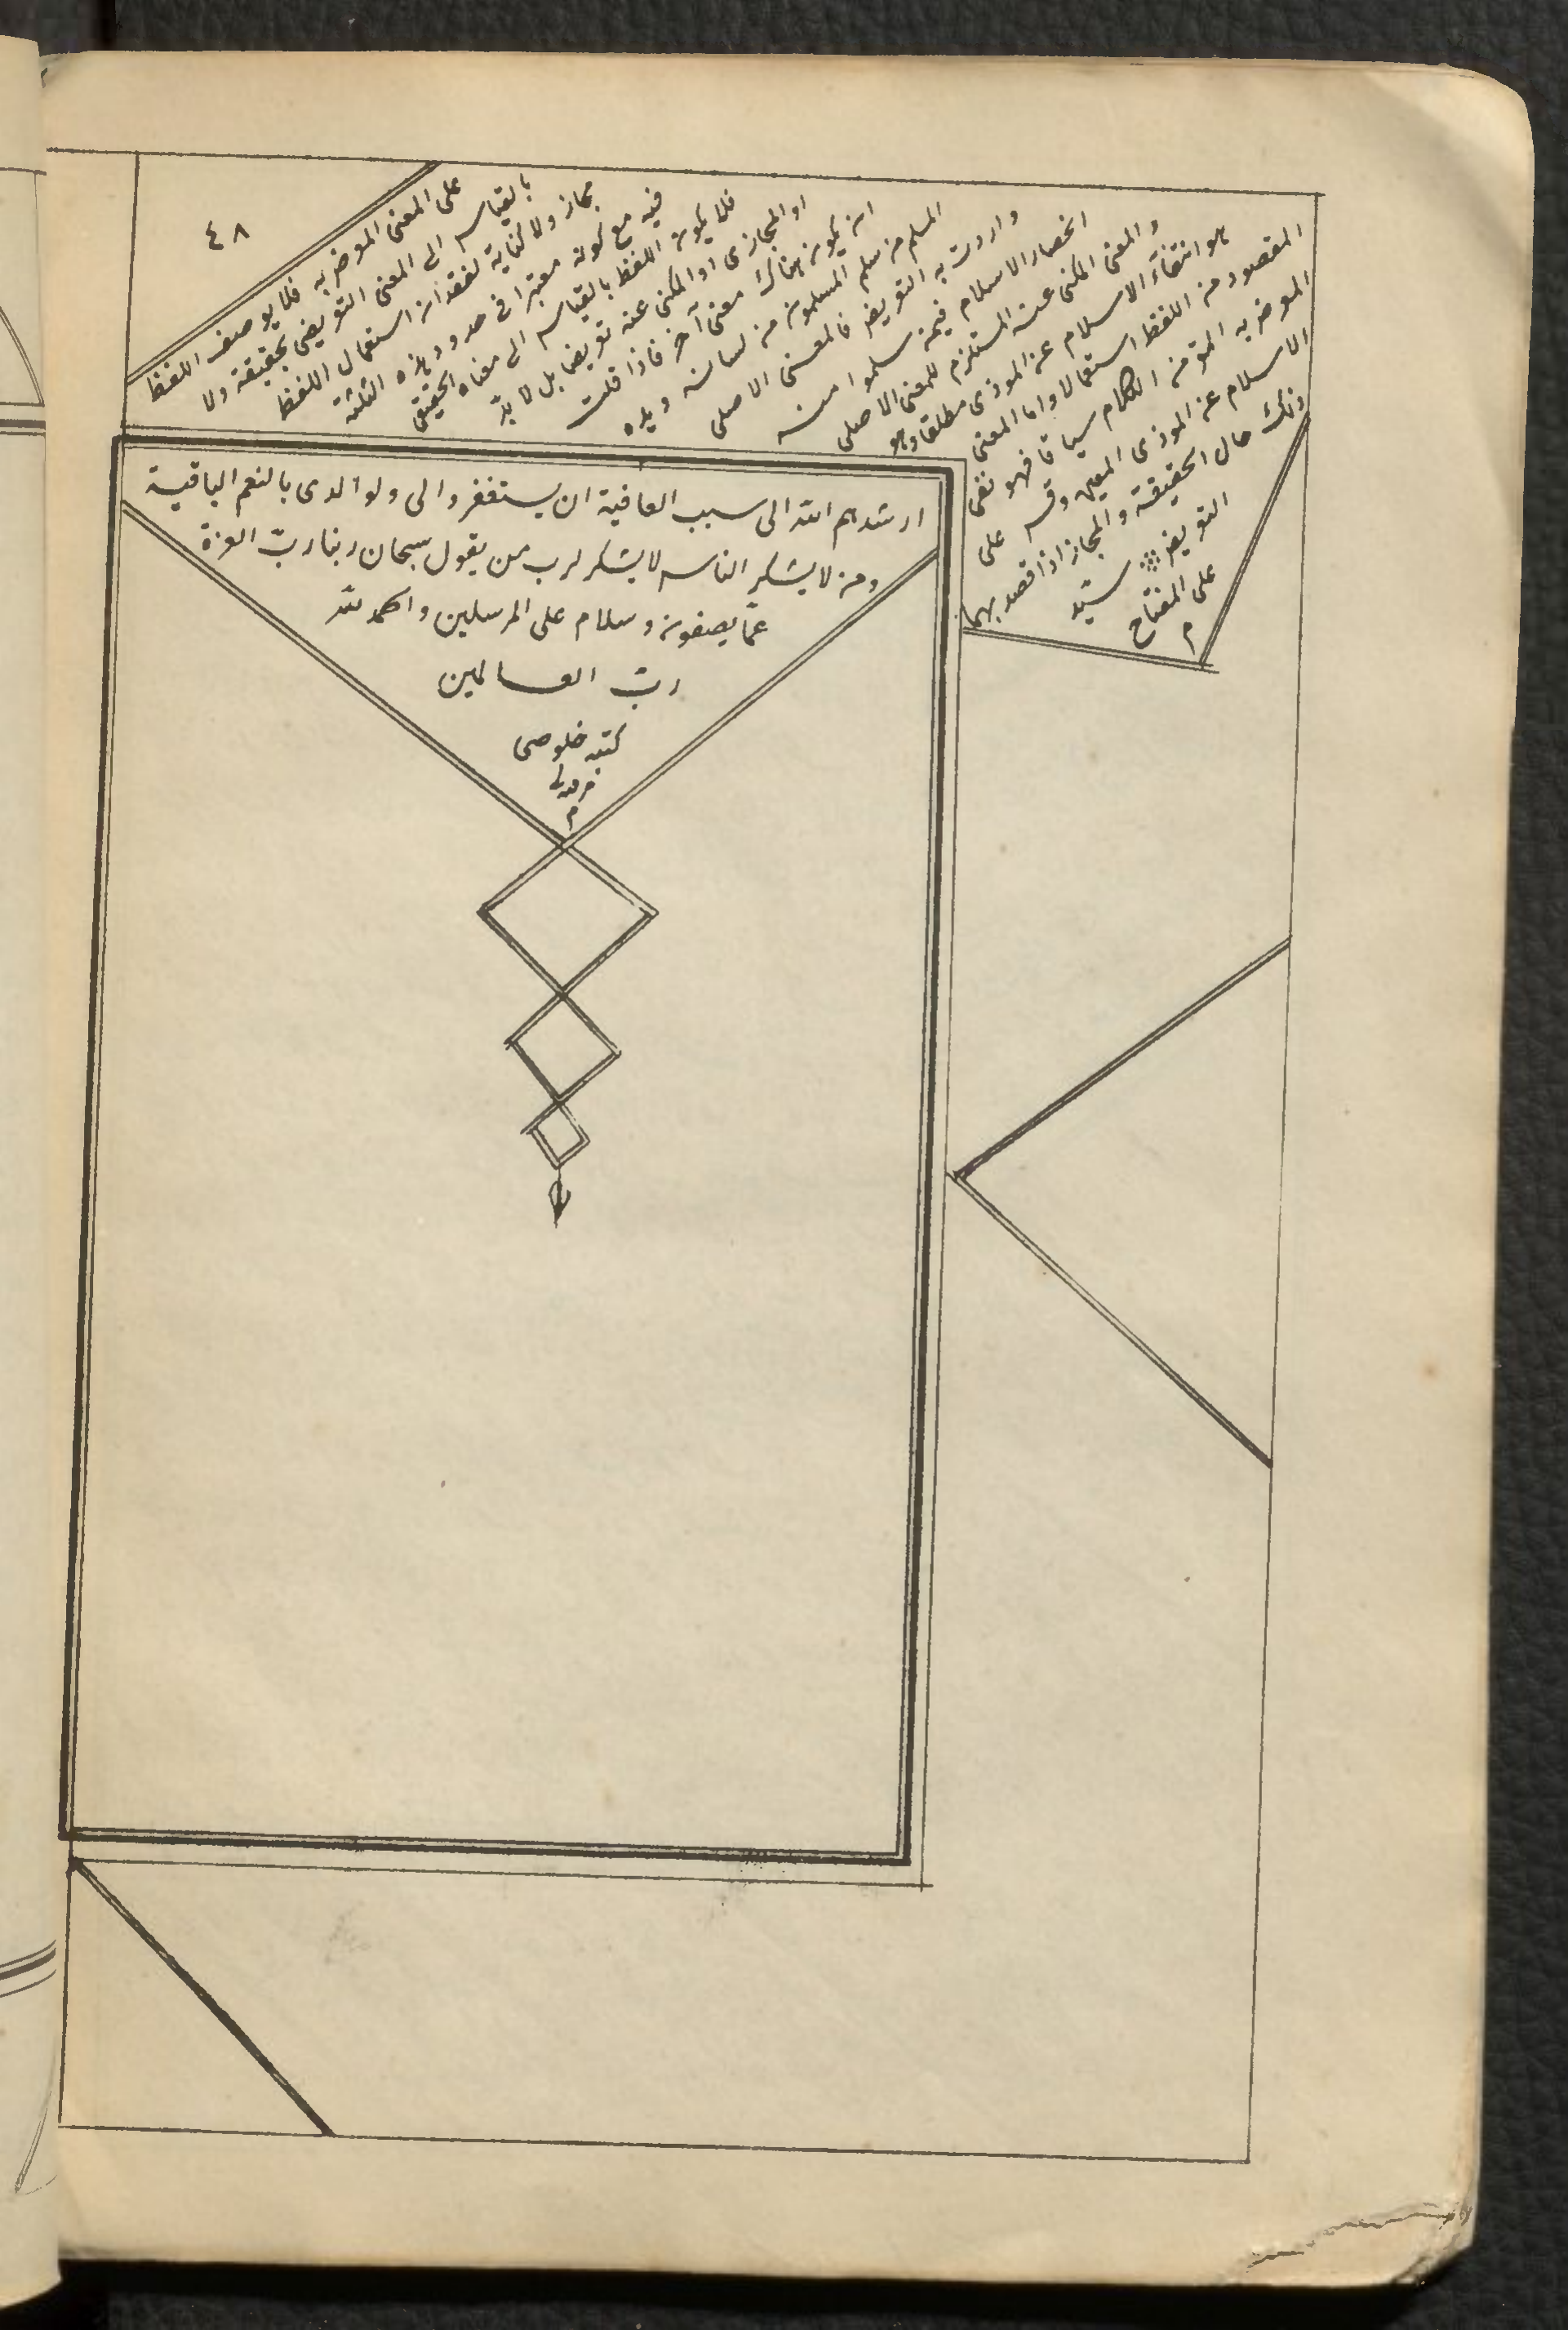 ٤٨
على المعنى المعرض به فلا يوصف اللفظ
بالقياس الى المعنى التعريضى بحقيقة ولا
مجاز ولا كناية لفقدان استعمال اللفظ
فيه مع كونه معتبرا فى حدود هذه الثلثة
فلا يكون اللفظ بالقياس الى معناه الحقيقى
او المجازى او المكنى عنه تعريضا بل لا بدّ
ان يكون هناك معنى آخر فاذا قلت
المسلم من سلم المسلمون من لسانه ويده
واردت به التعريض فالمعنى الاصلى
انحصار الاسلام فيمن سلموا منه
والمعنى المكنى عنه المستلزم للمعنى الاصلى
هو انتفاء الاسلام عن الموذى مطلقا وهو
المقصود من اللفظ استعمالا واما المعنى
المعرض به المقصود من الكلام سياقا فهو نفى
الاسلام عن الموذى المعين وقس على
ذلك حال الحقيقة والمجاز اذا قصد بهما
التعريض سيد
على المفتاح
م
ارشدهم الله الى سبب العافية ان يستغفروا لى ولوالدى بالنعم الباقية
ومن لا يشكر الناس لا يشكر لرب من يقول سبحان ربنا ربّ العزة
عمّا يصفون وسلام على المرسلين والحمد لله
ربّ العالمين
كتبه خلوصى
م